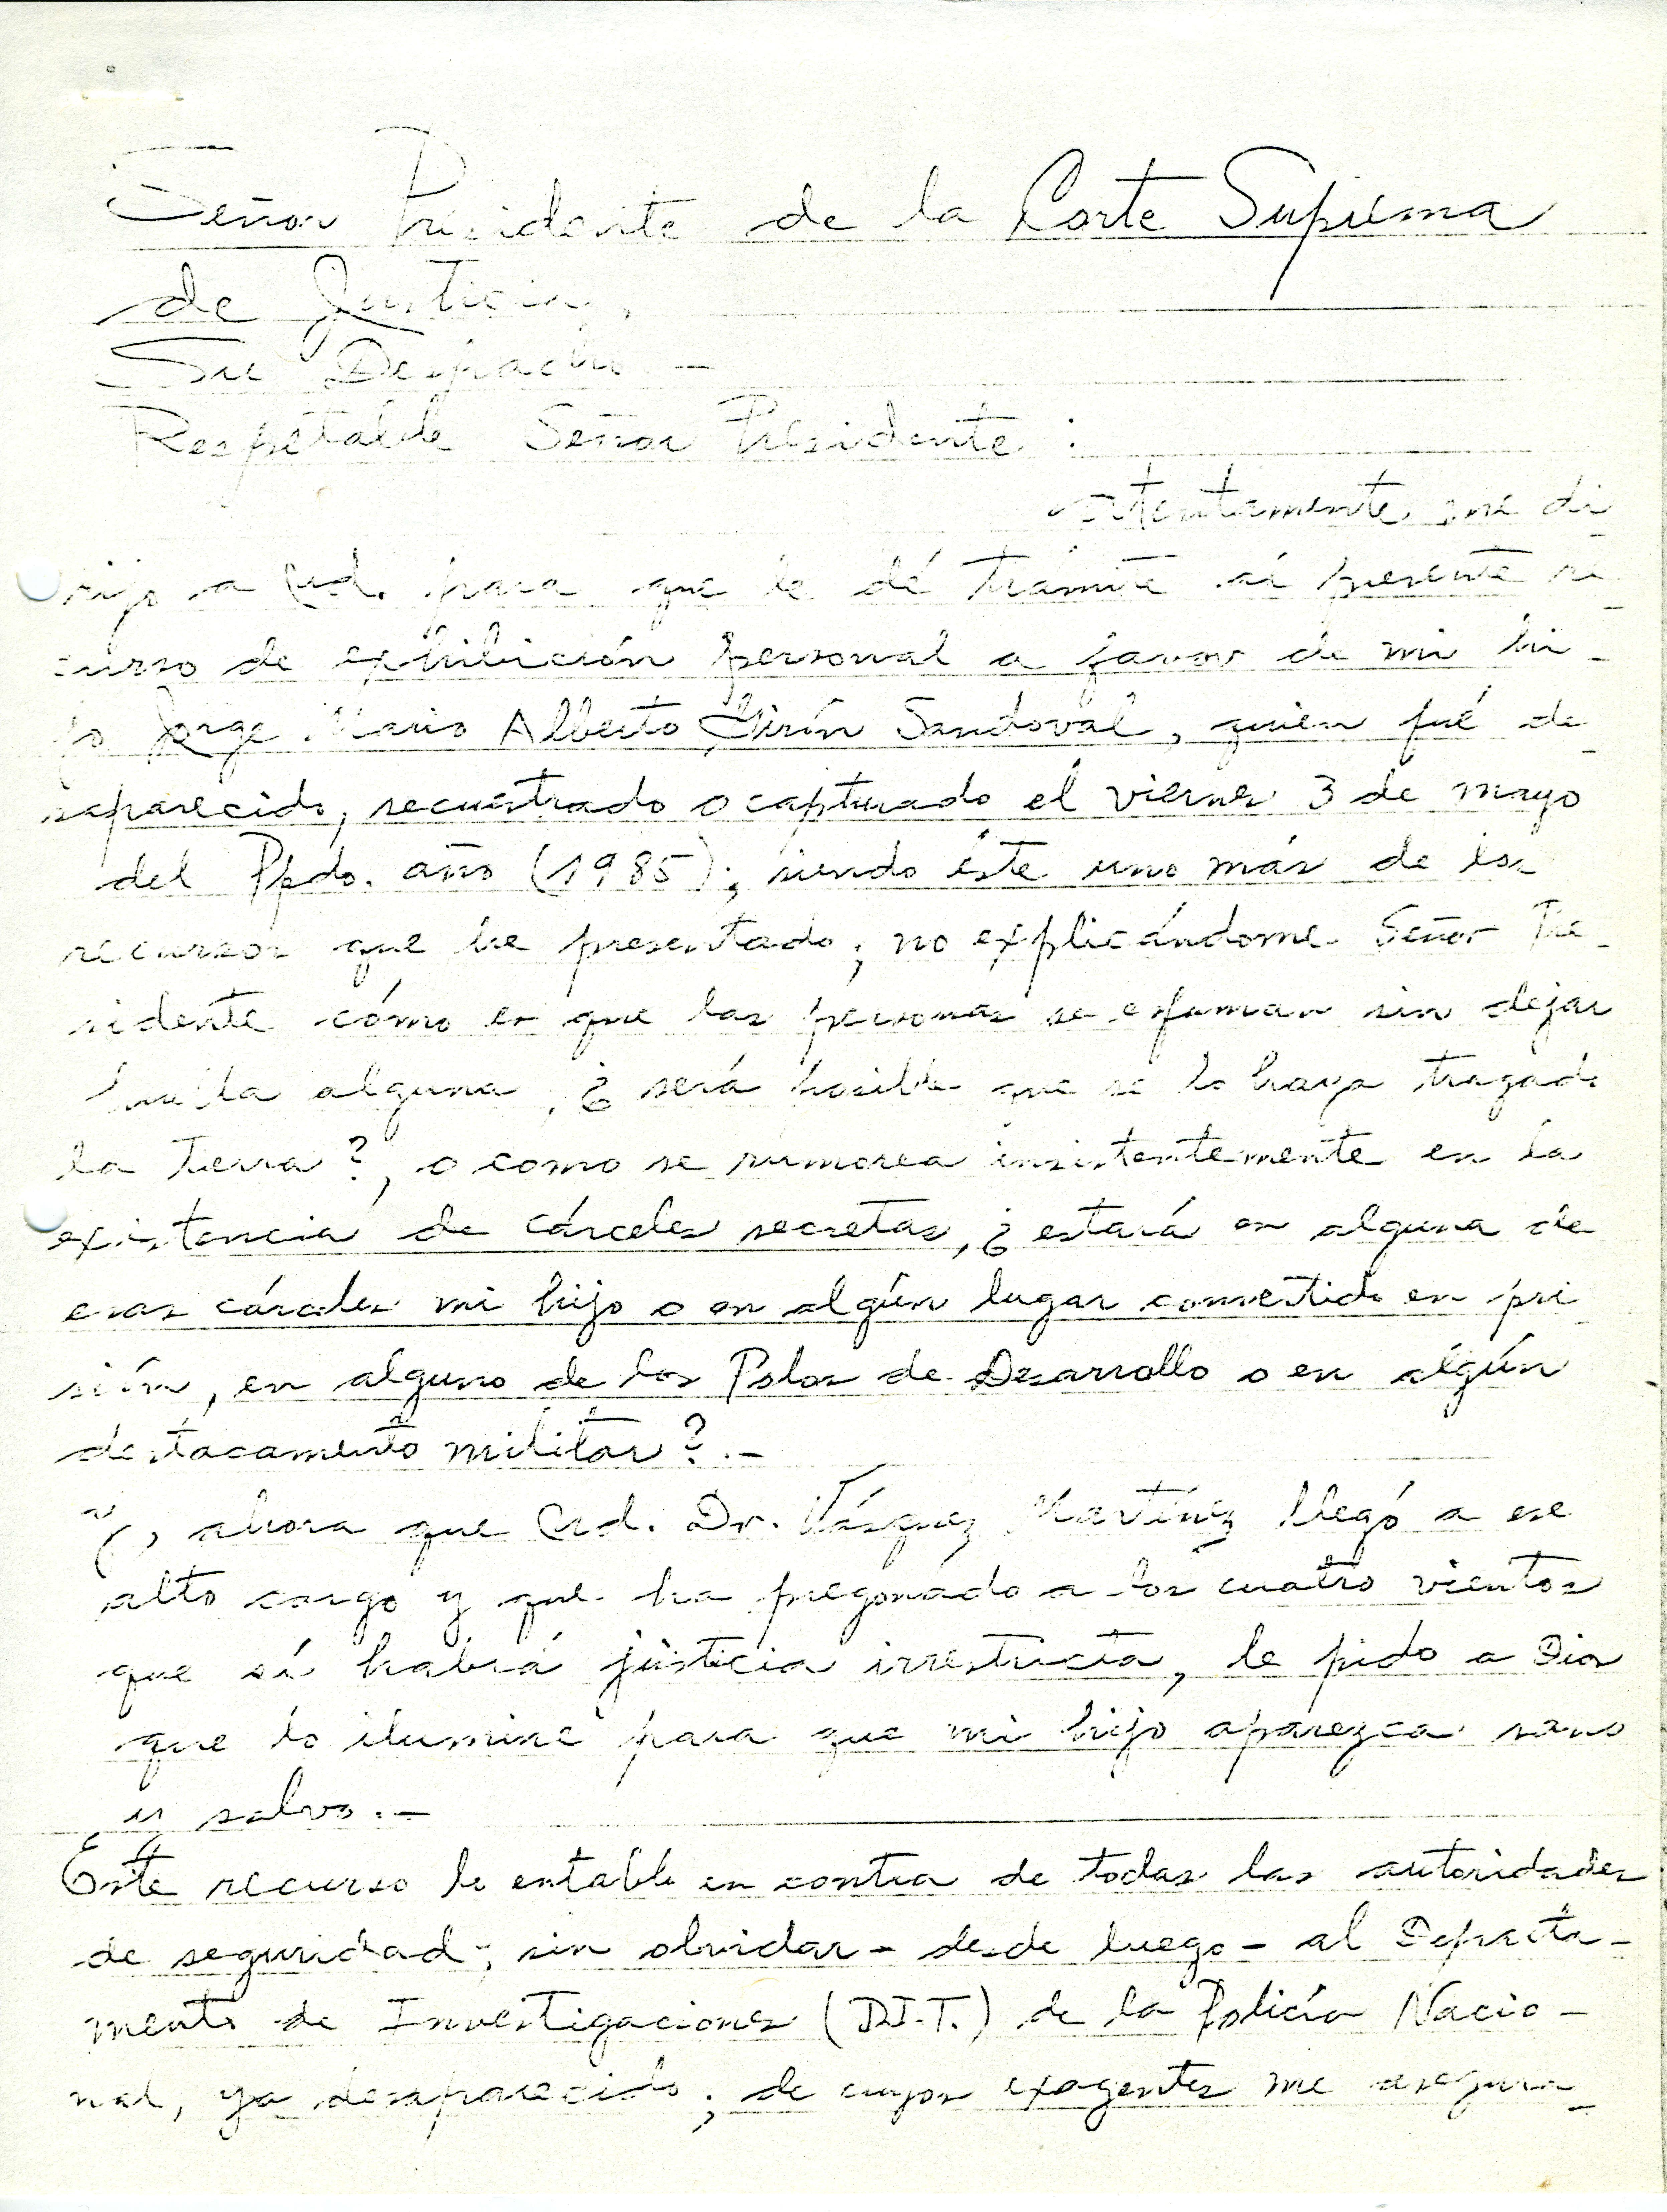 Señor Presidente de la Corte Suprema
de Justicia,
Su Despacho -
Respetable Señor Presidente :
Atentamente me di
rijo a Ud. para que le dé trámite al presente re
curso de exhibición personal a favor de mi hi-
jo Jorge Mario Alberto Girón Sandoval, quien fué de
saparecido, secuestrado o capturado el viernes 3 de mayo
del Ppdo. año (1985); siendo éste uno más de los
recursos que he presentado; no explicándome Señor Pre-
sidente cómo es que las personas se esfuman sin dejar
huella alguna, ¿será posible que se lo haya tragado
la tierra?, o como se rumorea insistentemente en la
existencia de cárceles secretas, ¿estará en alguna de
esas cárceles mi hijo o en algún lugar convertido en pri
sión, en alguno de los Polos de Desarrollo o en algún
destacamento militar?.-
Y, ahora que Ud. Dr. Vásquez Martínez llegó a ese
alto cargo y que ha pregonado a los cuatro vientos
que sí habrá justicia irrestricta, le pido a Dios
que lo ilumine para que mi hijo aparezca sano
y salvo.-
Este recurso lo entablo en contra de todas las autoridades
de seguridad; sin olvidar - desde luego - al Departa-
mento de Investigaciones (D.I.T.) de la Policía Nacio-
nal, ya desaparecido; de cuyos exagentes me asegura-